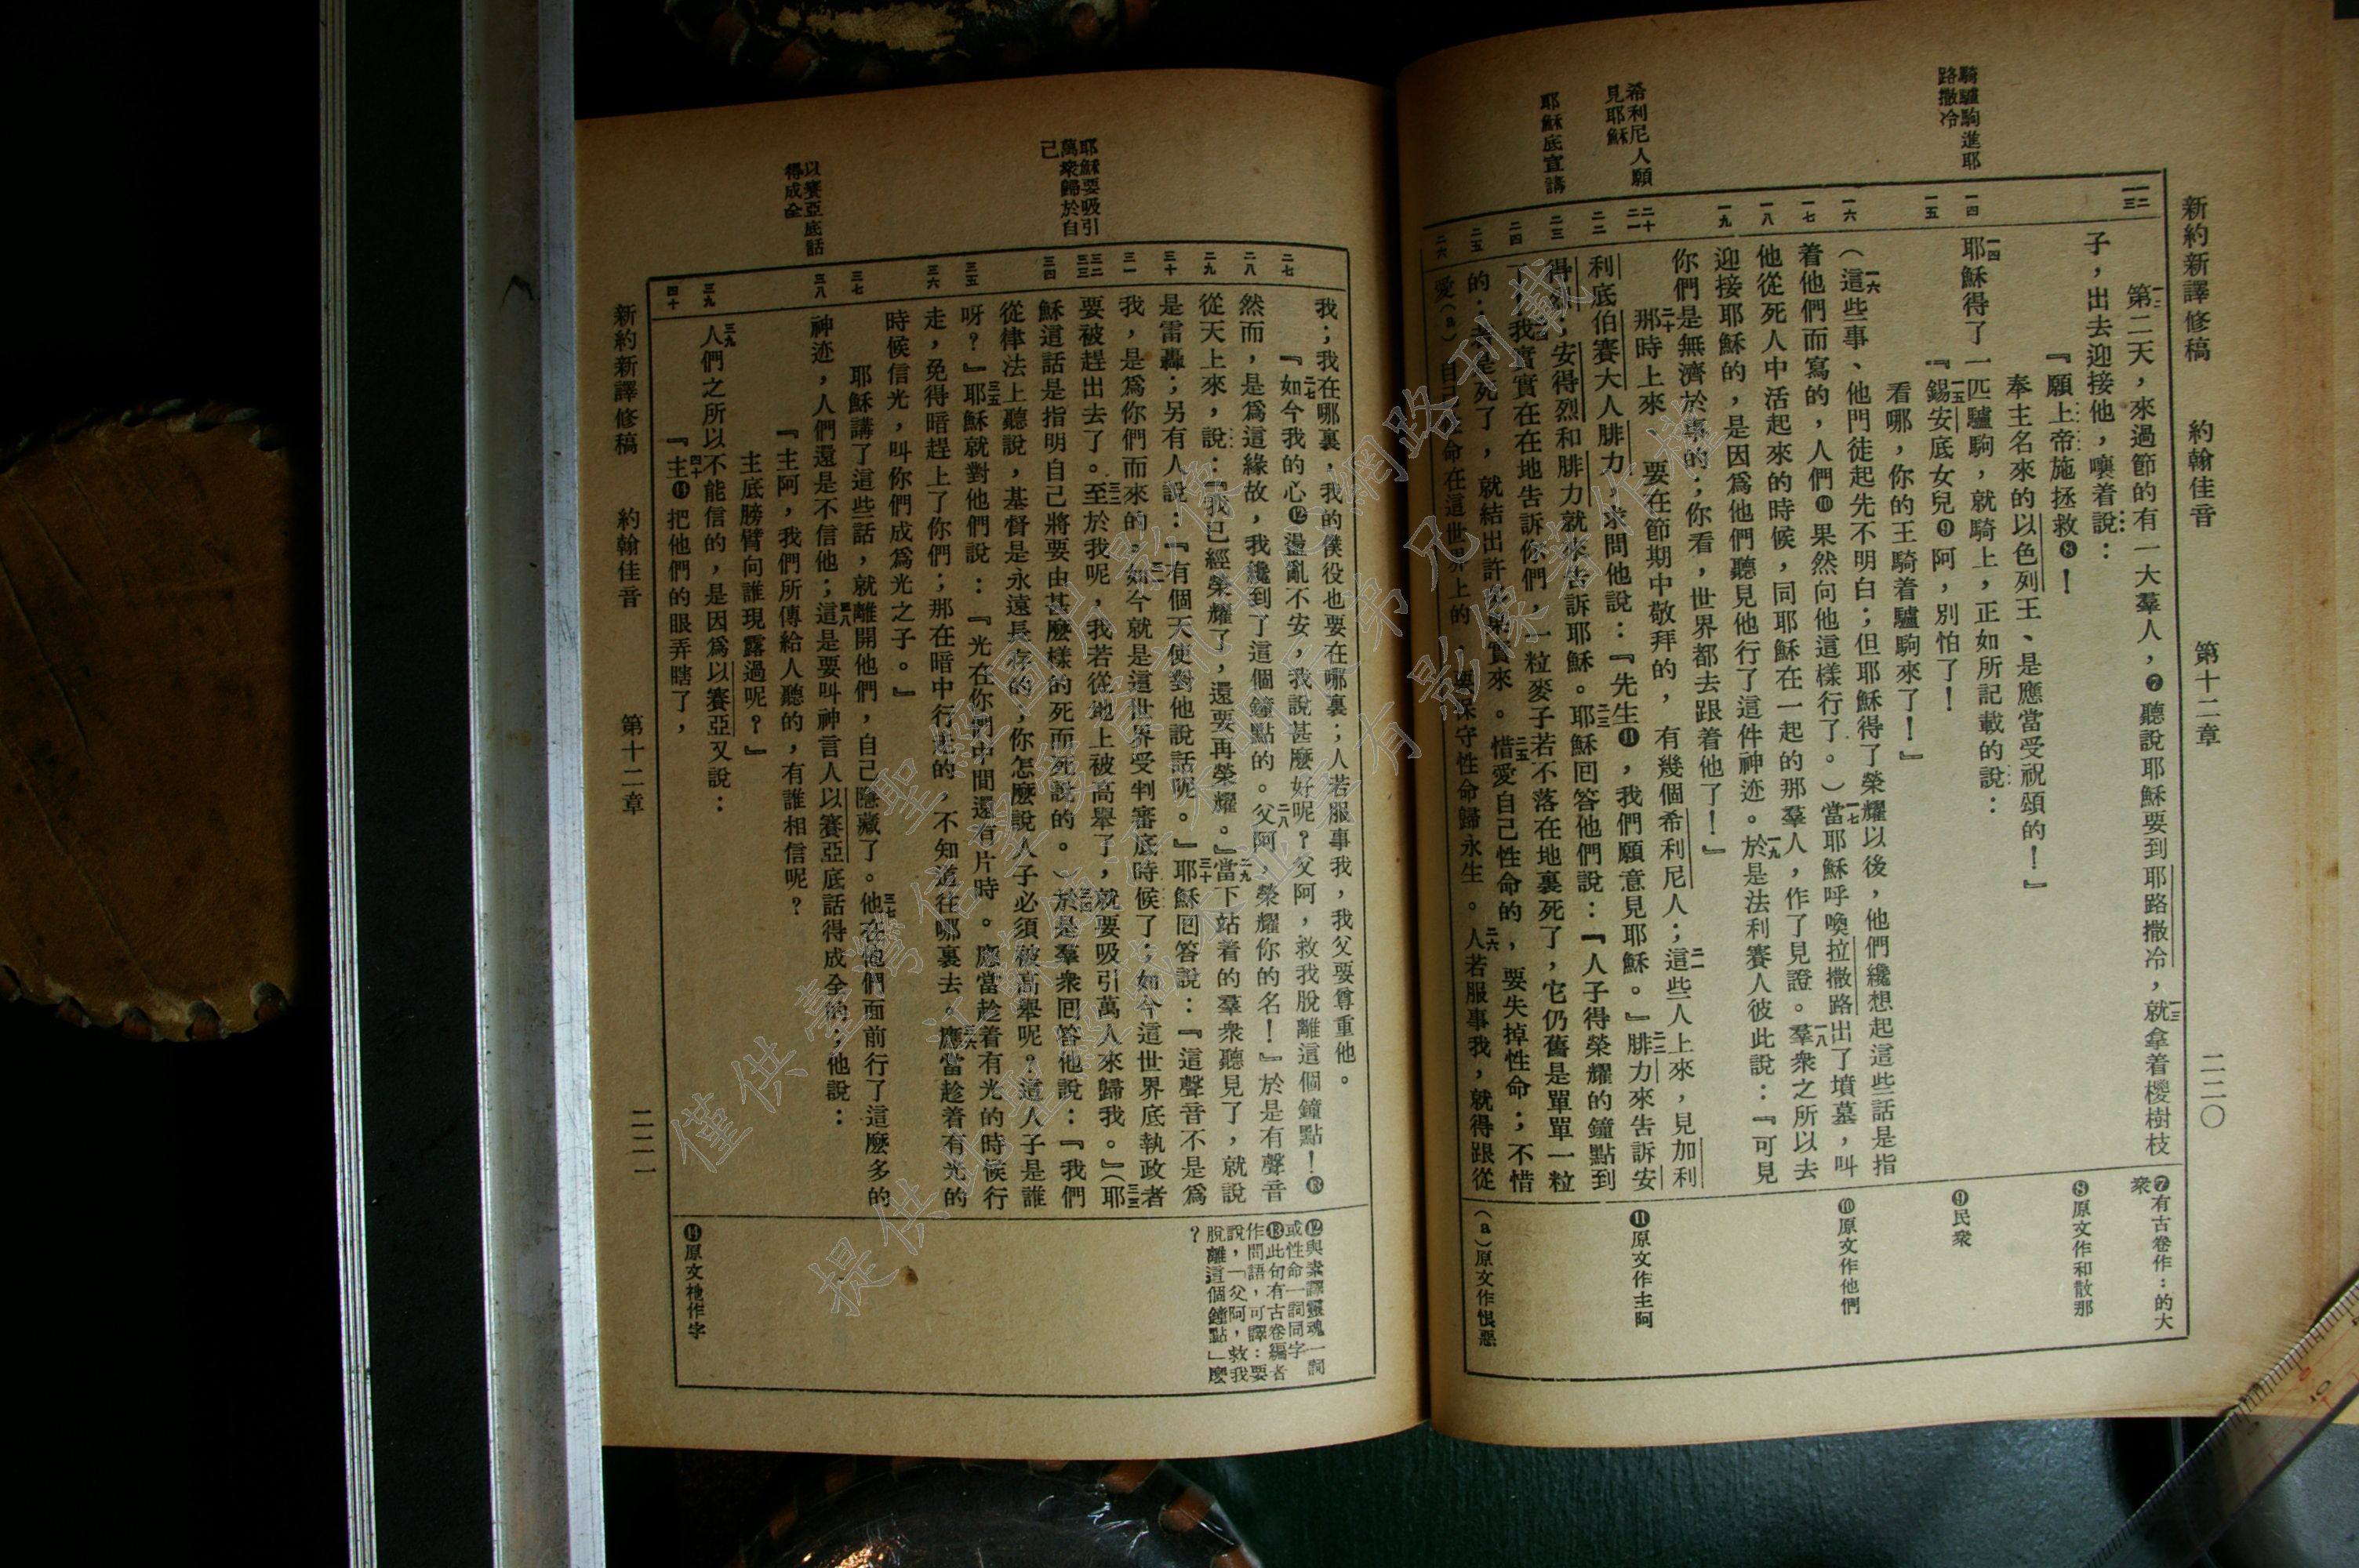 新約新譯修稿　約翰佳音　第十二章　二二〇
騎驢駒進耶
路撒冷
希利尼人願
見耶穌
耶穌底宣講
一二
一三
一四
一五
一六
一七
一八
一九
二十
二一
二二
二三
二四
二五
二六
第二天，來過節的有一大羣人，❼聽說耶穌要到耶路撒冷，一三就拿着椶樹枝
子，出去迎接他，嚷着說：
『願上帝施拯救❽！
奉主名來的以色列王、是應當受祝頌的！』
一四耶穌得了一匹驢駒，就騎上，正如所記載的說：
一五『錫安底女兒❾阿，別怕了！
看哪，你的王騎着驢駒來了！』
一六（這些事、他門徒起先不明白；但耶穌得了榮耀以後，他們纔想起這些話是指
着他們而寫的，人們❿果然向他這樣行了。）一七當耶穌呼喚拉撒路出了墳墓，叫
他從死人中活起來的時候，同耶穌在一起的那羣人，作了見證。一八羣衆之所以去
迎接耶穌的，是因爲他們聽見他行了這件神迹。一九於是法利賽人彼此說：『可見
你們是無濟於事的；你看，世界都去跟着他了！』
二十那時上來、要在節期中敬拜的，有幾個希利尼人；二一這些人上來，見加利
利底伯賽大人腓力，求問他說：『先生⓫，我們願意見耶穌。』二二腓力來告訴安
得烈；安得烈和腓力就來告訴耶穌。二三耶穌回答他們說：『人子得榮耀的鐘點到
了。我實實在在地告訴你們，一粒麥子若不落在地裏死了，它仍舊是單單一粒
的；若是死了，就結出許多果實來。二五惜愛自己性命的，要失掉性命；不惜
愛（a）自己性命在這世界上的，要保守性命歸永生。二六人若服事我，就得跟從
❼有古卷作：的大
衆
❽原文作和散那
❾民衆
❿原文作他們
⓫原文作主阿
（a）原文作恨惡
耶穌要吸引
萬衆歸於自
己
以賽亞底話
得成全
二七
二八
二九
三十
三一
三二
三三
三四
三五
三六
三七
三八
三九
四十
我；我在哪裏，我的僕役也要在哪裏；人若服事我，我父要尊重他。
二七『如今我的心⓬盪亂不安，我說甚麼好呢？父阿，救我脫離這個鐘點！⓭
然而，是爲這緣故，我纔到了這個鐘點的。二八父阿，榮耀你的名！』於是有聲音
從天上來，說：『我已經榮耀了，還要再榮耀。』二九當下站着的羣衆聽見了，就說
是雷轟；另有人說：『有個天使對他說話呢。』三十耶穌回答說：『這聲音不是爲
我，是爲你們而來的。三一如今就是這世界受判審底時候了；如今這世界底執政者
要被趕出去了。三二至於我呢，我若從地上被高舉了，就要吸引萬人來歸我。』三三（耶
穌這話是指明自己將要由甚麼樣的死而死說的。）三四於是羣衆回答他說：『我們
從律法上聽說，基督是永遠長存的，你怎麼說人子必須被高舉呢？這人子是誰
呀？』三五耶穌就對他們說：『光在你們中間還有片時。應當趁着有光的時候行
走，免得暗趕上了你們；那在暗中行走的，不知道往哪裏去。三六應當趁着有光的
時候信光，叫你們成爲光之子。』
耶穌講了這些話，就離開他們，自己隱藏了。三七他在他們面前行了這麼多的
神迹，人們還是不信他；三八這是要叫神言人以賽亞底話得成全的；他說：
『主阿，我們所傳給人聽的，有誰相信呢？
主底膀臂向誰現露過呢？』
三九人們之所以不能信的，是因爲以賽亞又說：
四十『主⓮把他們的眼弄瞎了，
⓬與素譯靈魂一詞
或性命一詞同字
⓭此句有古卷編者
作問語，可譯：要
說，「父阿，救我
脫離這個鐘點」麼
？
新約新譯修稿　約翰佳音　第十二章　二二一